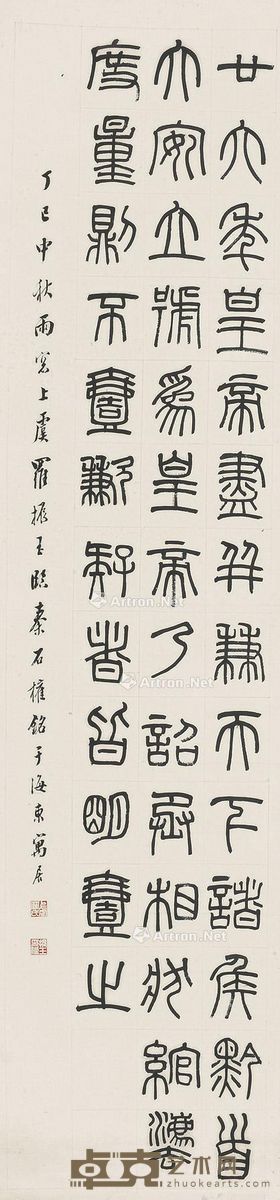 廿六年皇帝盡并兼天下諸侯黔首
大安立號爲皇帝乃詔丞相狀綰灋
度量則不壹歉疑者皆明壹之
丁巳中秋雨窓上虞羅振玉臨秦石權銘于海東寓居
Artron.Net
Artron.Net
Artron.Net
卓克艺术网
zhuokearts.com